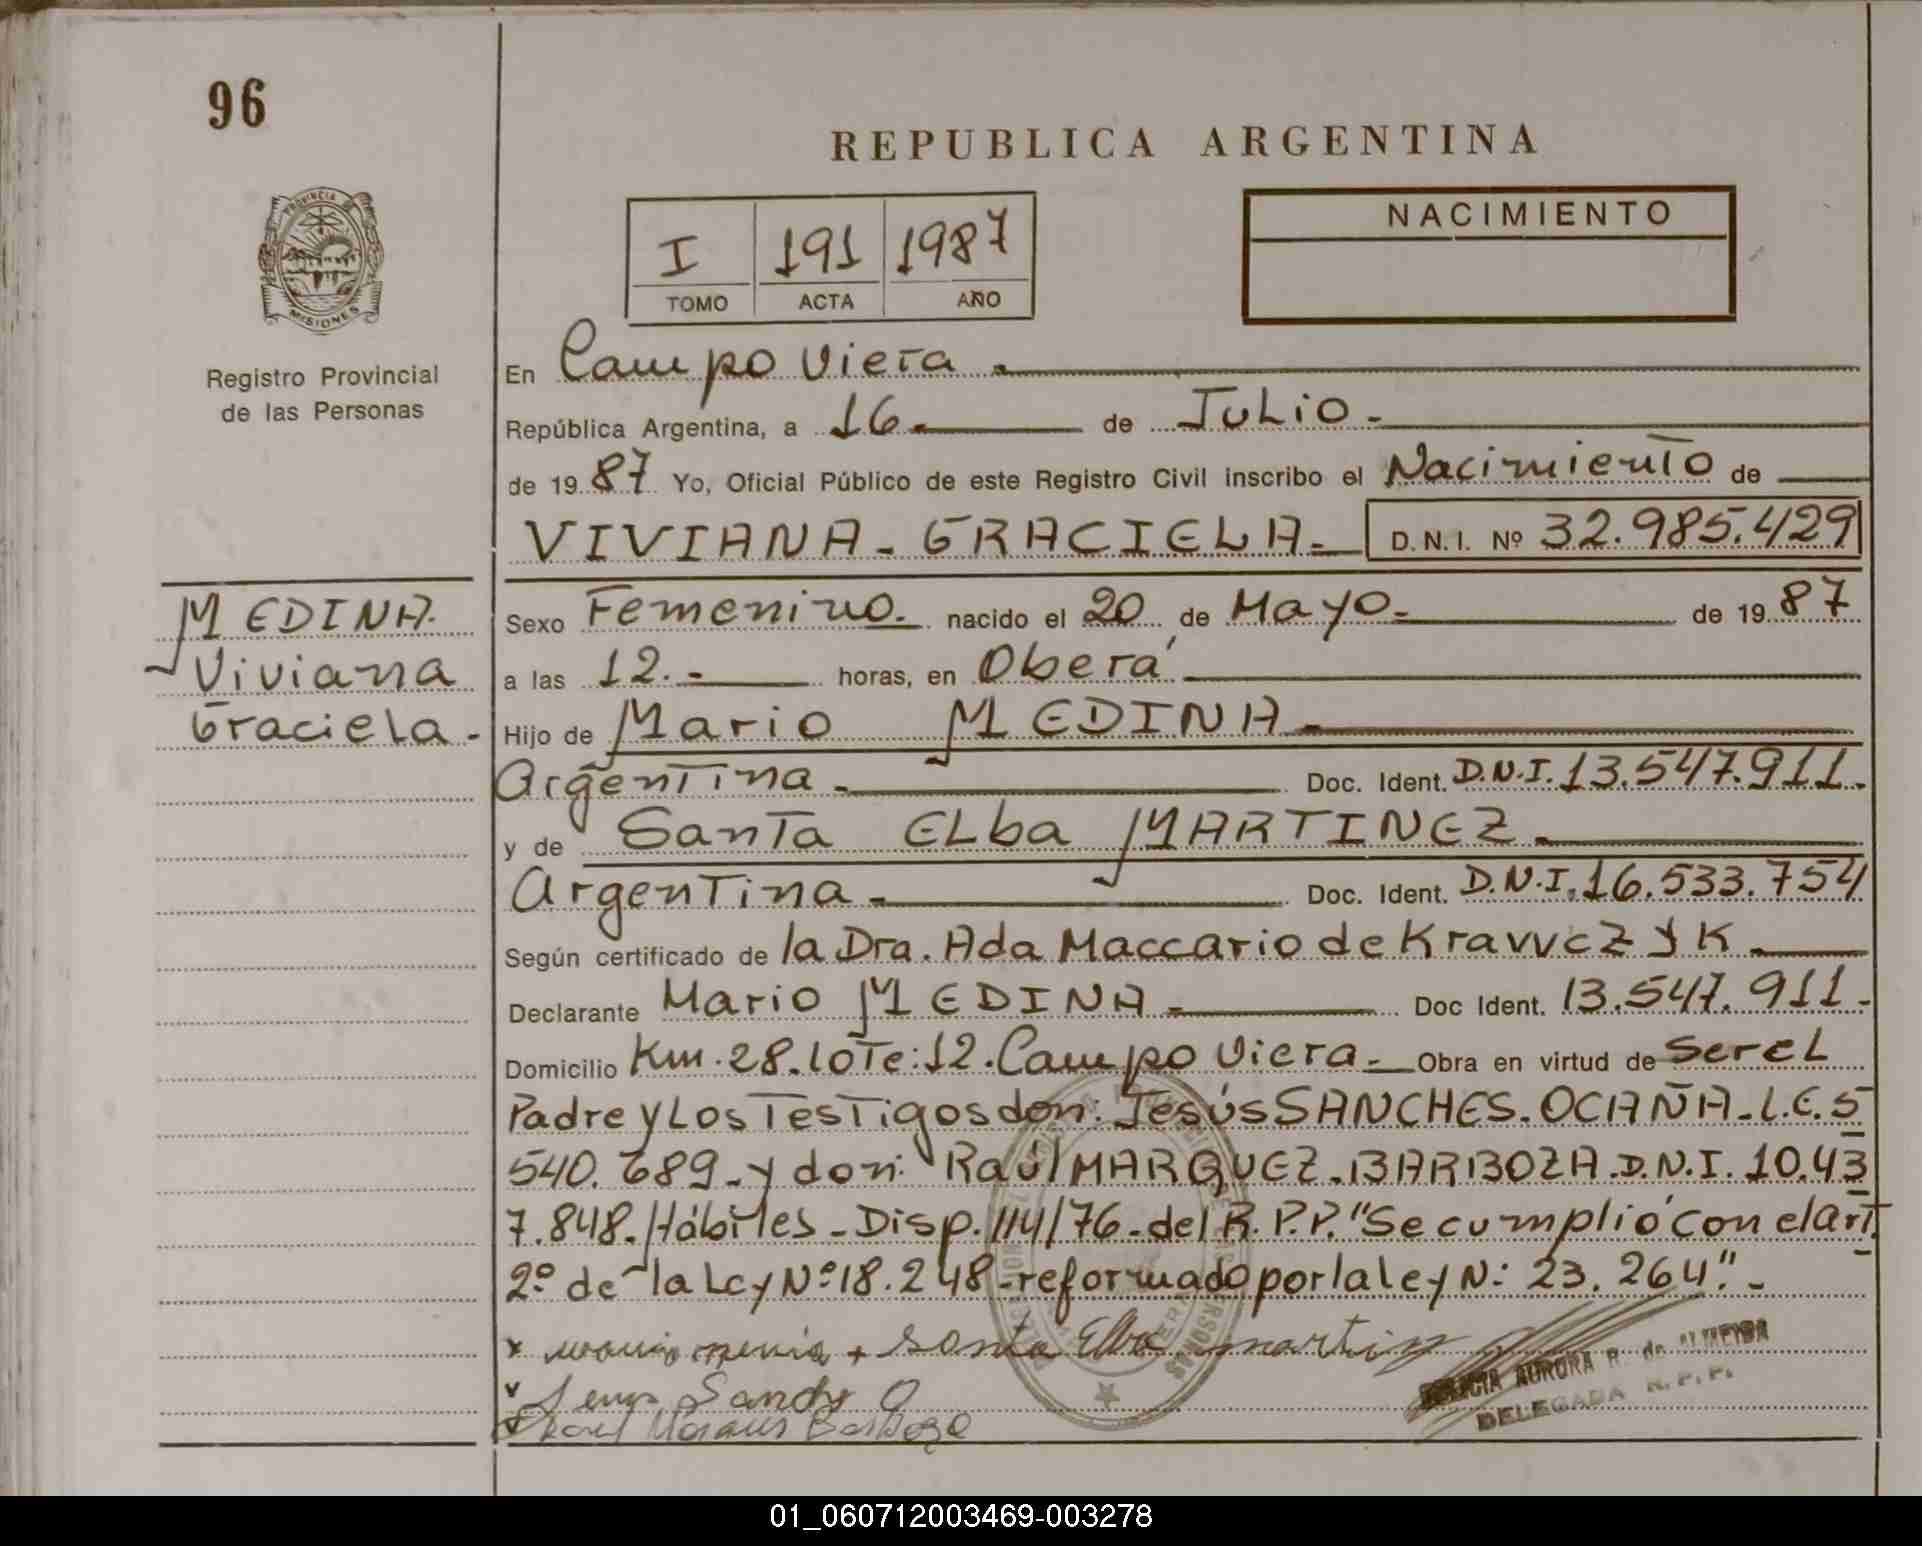 96
REPUBLICA ARGENTINA
PROVINCIA DE
MISIONES
Registro Provincial
de las Personas
I 191 1987
TOMO ACTA AÑO
NACIMIENTO
En Campo Viera.
República Argentina, a 16 de Julio.
de 1987 Yo, Oficial Público de este Registro Civil inscribo el Nacimiento de
VIVIANA - GRACIELA.- D.N.I. Nº 32.985.429
MEDINA.
Viviana
Graciela.
Sexo Femenino. nacido el 20 de Mayo.- de 1987
a las 12.- horas, en Oberá
Hijo de Mario MEDINA.
Argentina. Doc. Ident. D.N.I. 13.547.911.
y de Santa Elba MARTINEZ.
Argentina. Doc. Ident. D.N.I. 16.533.754
Según certificado de la Dra. Ada Maccario de Kravvczyk
Declarante Mario MEDINA.- Doc Ident. 13.547.911.
Domicilio Km.28.Lote:12.Campo Viera.- Obra en virtud de Ser el
Padre y Los Testigos don: Jesús SANCHES.OCAÑA.L.E.5
540.689.y don: Raúl MARQUEZ.BARBOZA.D.N.I. 10.43
7.848.Hábiles-Disp.114/76.del R.P.P."Se cumplió con el art
2º de la Ley Nº18.248-reformado por la ley N: 23.264".-
x + Santa Elba martinez
DELEGADA R.P.P.
AURORA R. de ALMEIDA
01_060712003469-003278